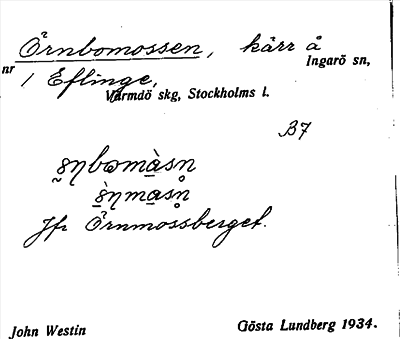 Örnbomossen, kärr å
nr Ingarö sn,
1 Eflinge,
Värmdö skg, Stockholms l.
B7
Jfr Örnmossberget.
John Westin Gösta Lundberg 1934.